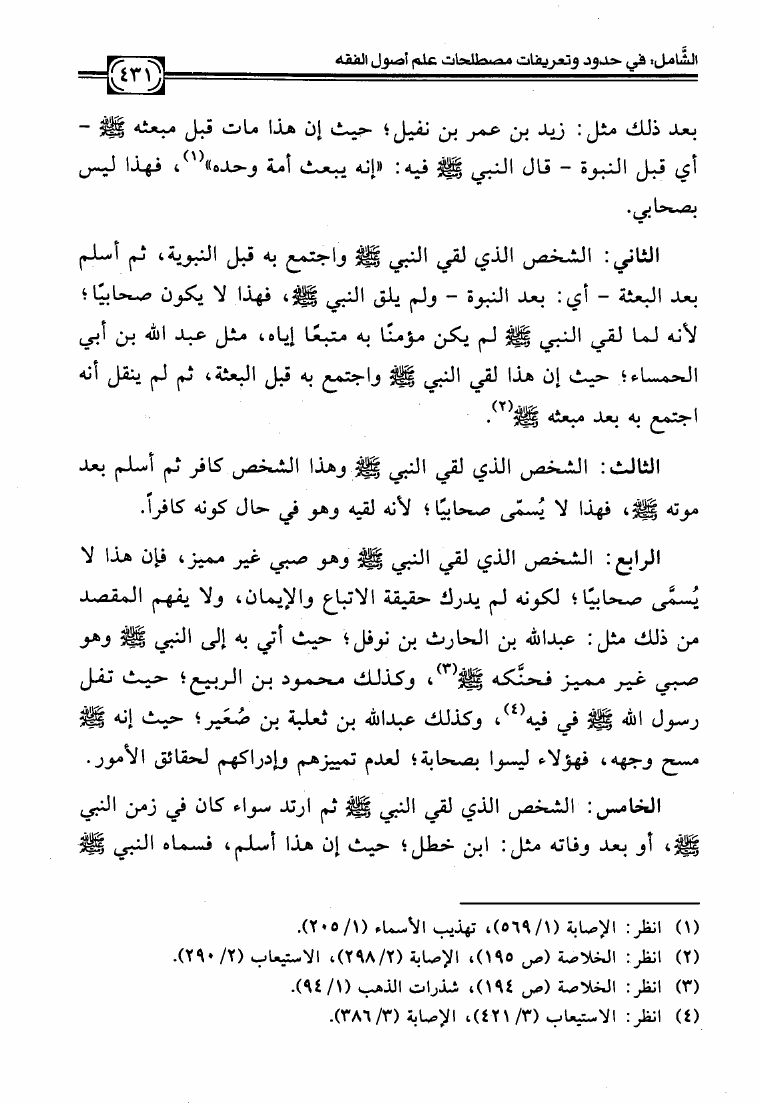 الشَّامل: في حدود وتعريفات مصطلحات علم أصول الفقه
٤٣١
بعد ذلك مثل: زيد بن عمر بن نفيل؛ حيث إن هذا مات قبل مبعثه ﷺ -
أي قبل النبوة - قال النبي ﷺ فيه: «إنه يبعث أمة وحده»(١)، فهذا ليس
بصحابي.
الثاني: الشخص الذي لقي النبي ﷺ واجتمع به قبل النبوية، ثم أسلم
بعد البعثة - أي: بعد النبوة - ولم يلق النبي ﷺ، فهذا لا يكون صحابيًا؛
لأنه لما لقي النبي ﷺ لم يكن مؤمنًا به متبعًا إياه، مثل عبد الله بن أبي
الحمساء؛ حيث إن هذا لقي النبي ﷺ واجتمع به قبل البعثة، ثم لم ينقل أنه
اجتمع به بعد مبعثه ﷺ(٢).
الثالث: الشخص الذي لقي النبي ﷺ وهذا الشخص كافر ثم أسلم بعد
موته ﷺ، فهذا لا يُسمّى صحابيًا؛ لأنه لقيه وهو في حال كونه كافراً.
الرابع: الشخص الذي لقي النبي ﷺ وهو صبي غير مميز، فإن هذا لا
يُسمَّى صحابيًا؛ لكونه لم يدرك حقيقة الاتباع والإيمان، ولا يفهم المقصد
من ذلك مثل: عبدالله بن الحارث بن نوفل؛ حيث أتي به إلى النبي ﷺ وهو
صبي غير مميز فحنَّكه ﷺ(٣)، وكذلك محمود بن الربيع؛ حيث تفل
رسول الله ﷺ في فيه(٤)، وكذلك عبدالله بن ثعلبة بن صُعَير؛ حيث إنه ﷺ
مسح وجهه، فهؤلاء ليسوا بصحابة؛ لعدم تمييزهم وإدراكهم لحقائق الأمور.
الخامس: الشخص الذي لقي النبي ﷺ ثم ارتد سواء كان في زمن النبي
ﷺ، أو بعد وفاته مثل: ابن خطل؛ حيث إن هذا أسلم، فسماه النبي ﷺ
(١) انظر: الإصابة (١/ ٥٦٩)، تهذيب الأسماء (١/ ٢٠٥).
(٢) انظر: الخلاصة (ص ١٩٥)، الإصابة (٢/ ٢٩٨)، الاستيعاب (٢/ ٢٩٠).
(٣) انظر: الخلاصة (ص ١٩٤)، شذرات الذهب (١/ ٩٤).
(٤) انظر: الاستيعاب (٣/ ٤٢١)، الإصابة (٣/ ٣٨٦).